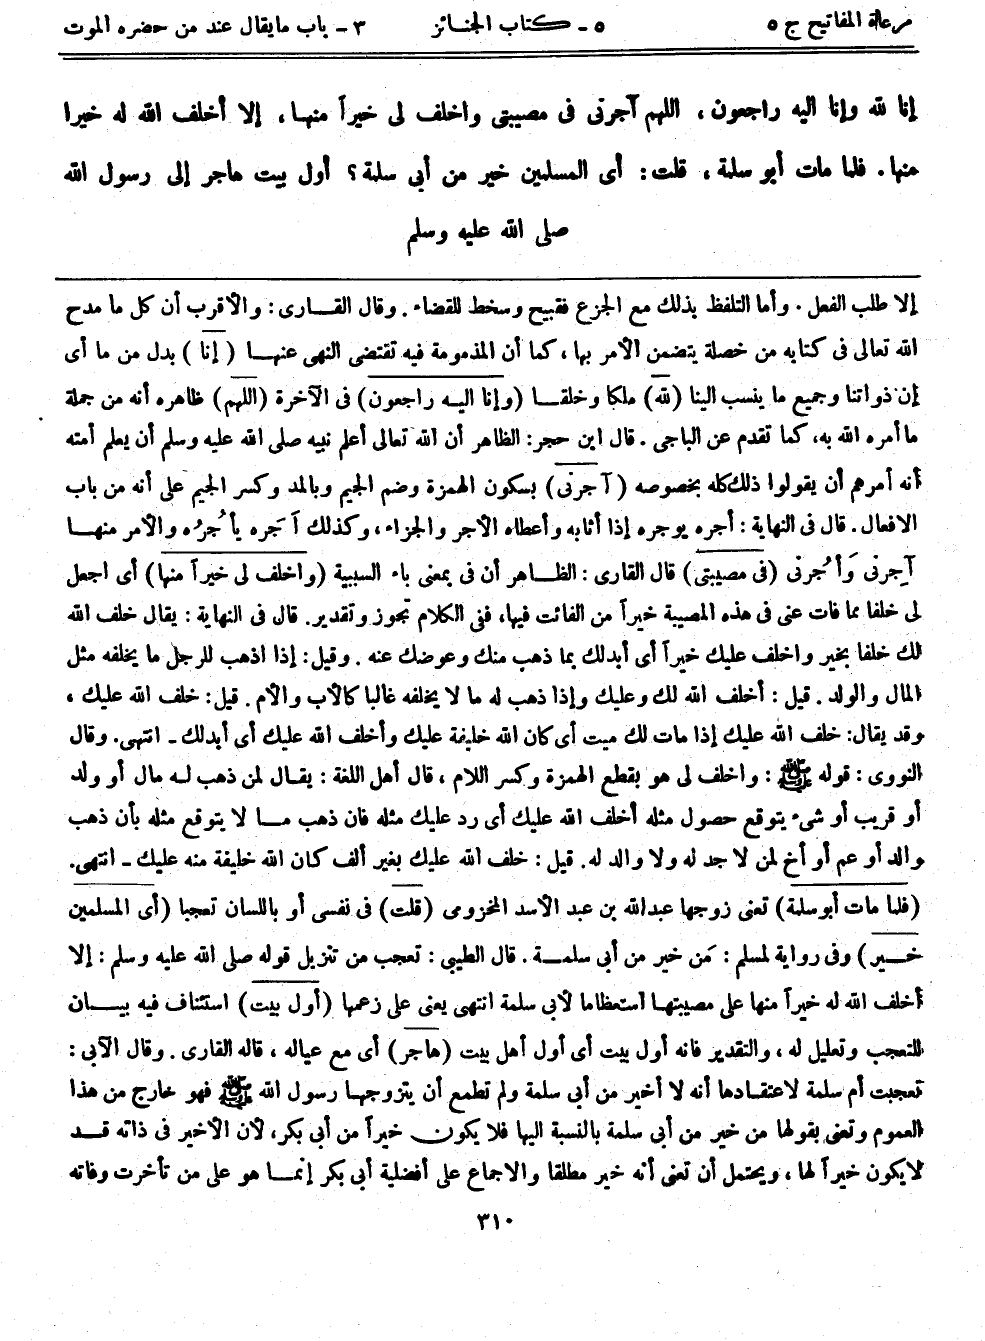 مرعاة المفاتيح ج ٥ ٥ ـ كتاب الجنائز ٣ ـ باب مايقال عند من حضره الموت
إنا لله وإنا اليه راجعون ، اللهم آجرنى فى مصيبتى واخلف لى خيراً منها ، إلا أخلف الله له خيرا
منها . فلما مات أبو سلمة ، قلت : أى المسلمين خير من أبى سلمة ؟ أول بيت هاجر إلى رسول الله
صلى الله عليه وسلم
إلا طلب الفعل . وأما التلفظ بذلك مع الجزع فقبيح وسخط للقضاء . وقال القارى : والأقرب أن كل ما مدح
الله تعالى فى كتابه من خصلة يتضمن الأمر بها ، كما أن المذمومة فيه تقتضى النهى عنها ( إنا ) بدل من ما أى
إن ذواتنا وجميع ما ينسب الينا (لله) ملكا وخلقا (وإنا اليه راجعون) فى الآخرة (اللهم) ظاهره أنه من جملة
ما أمره الله به، كما تقدم عن الباجى . قال ابن حجر: الظاهر أن الله تعالى أعلم نبيه صلى الله عليه وسلم أن يعلم أمته
أنه أمرهم أن يقولوا ذلك كله بخصوصه (آجرنى) بسكون الهمزة وضم الجيم وبالمد وكسر الجيم على أنه من باب
الافعال . قال فى النهاية : أجره يوجره إذا أثابه وأعطاه الأجر والجزاء ، وكذلك آجَره يأجُرُه والأمر منهما
آجِرنى وَأْجُرنى (فى مصيبتى) قال القارى : الظاهر أن فى بمعنى باء السببية (واخلف لى خيراً منها) أى اجعل
لى خلفا مما فات عنى فى هذه المصيبة خيراً من الفائت فيها، ففى الكلام تجوز وتقدير. قال فى النهاية : يقال خلف الله
لك خلفا بخير واخلف عليك خيراً أى أبدلك بما ذهب منك وعوضك عنه . وقيل: إذا اذهب للرجل ما يخلفه مثل
المال والولد . قيل : أخلف الله لك وعليك وإذا ذهب له ما لا يخلفه غالبا كالأب والأم . قيل: خلف الله عليك ،
وقد يقال: خلف الله عليك إذا مات لك ميت أى كان الله خليفة عليك وأخلف الله عليك أى أبدلك ـ انتهى. وقال
النووى : قوله ﷺ : واخلف لى هو بقطع الهمزة وكسر اللام ، قال أهل اللغة : يقال لمن ذهب له مال أو ولد
أو قريب أو شىء يتوقع حصول مثله أخلف الله عليك أى رد عليك مثله فان ذهب ما لا يتوقع مثله بأن ذهب
والد أو عم أو أخ لمن لا جد له ولا والد له . قيل : خلف الله عليك بغير ألف كان الله خليفة منه عليك ـ انتهى.
(فلما مات أبو سلمة) تعنى زوجها عبدالله بن عبد الأسد المخزومى (قلت) فى نفسى أو باللسان تعجبا (أى المسلمين
خير) وفى رواية لمسلم : مَن خير من أبى سلمة . قال الطيبى : تعجب من تنزيل قوله صلى الله عليه وسلم : إلا
أخلف الله له خيراً منها على مصيبتها استعظاما لأبى سلمة انتهى يعنى على زعمها (أول بيت) استئناف فيه بيان
للتعجب وتعليل له ، والتقدير فانه أول بيت أى أول أهل بيت (هاجر) أى مع عياله ، قاله القارى . وقال الآبى :
تعجبت أم سلمة لاعتقادها أنه لا أخير من أبى سلمة ولم تطمع أن يتزوجها رسول الله ﷺ فهو خارج من هذا
العموم وتعنى بقولها من خير من أبى سلمة بالنسبة اليها فلا يكون خيراً من أبى بكر، لأن الأخير فى ذاته قد
لايكون خيراً لها ، ويحتمل أن تعنى أنه خير مطلقا والاجماع على أفضلية أبى بكر إنما هو على من تأخرت وفاته
٣١٠